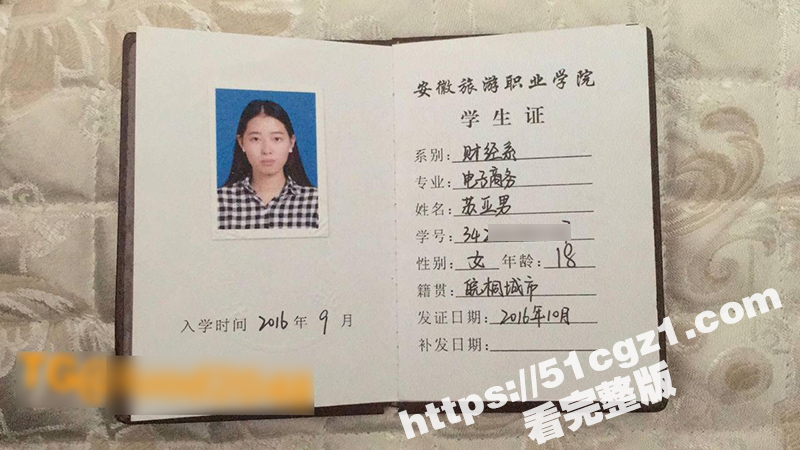 安徽旅游职业学院
学生证
系别：财经系
专业：电子商务
姓名：苏亚男
学号：342
性别：女 年龄：18
籍贯：皖桐城市
发证日期：2016年10月
补发日期：
入学时间 2016年 9月
https://51cgz1.com
看完整版